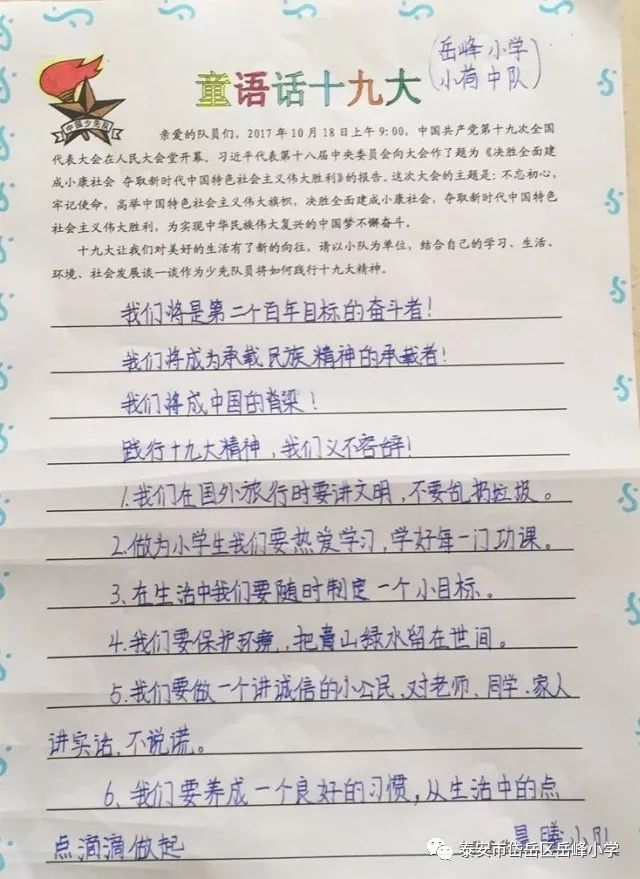 童语话十九大
(岳峰小学
小荷中队)
中国少先队
亲爱的队员们，2017年10月18日上午9:00，中国共产党第十九次全国
代表大会在人民大会堂开幕。习近平代表第十八届中央委员会向大会作了题为《决胜全面建
成小康社会 夺取新时代中国特色社会主义伟大胜利》的报告。这次大会的主题是：不忘初心，
牢记使命，高举中国特色社会主义伟大旗帜，决胜全面建成小康社会，夺取新时代中国特色
社会主义伟大胜利，为实现中华民族伟大复兴的中国梦不懈奋斗。
十九大让我们对美好的生活有了新的向往，请以小队为单位，结合自己的学习、生活、
环境、社会发展谈一谈作为少先队员将如何践行十九大精神。
我们将是第二个百年目标的奋斗者！
我们将成为承载民族精神的承载者！
我们将成中国的脊梁！
践行十九大精神，我们义不容辞！
1.我们在国外旅行时要讲文明，不要乱扔垃圾。
2.做为小学生我们要热爱学习，学好每一门功课。
3、在生活中我们要随时制定一个小目标。
4、我们要保护环境，把青山绿水留在世间。
5、我们要做一个讲诚信的小公民，对老师、同学、家人
讲实话、不说谎。
6、我们要养成一个良好的习惯，从生活中的点
点滴滴做起
晨曦小队
泰安市岱岳区岳峰小学